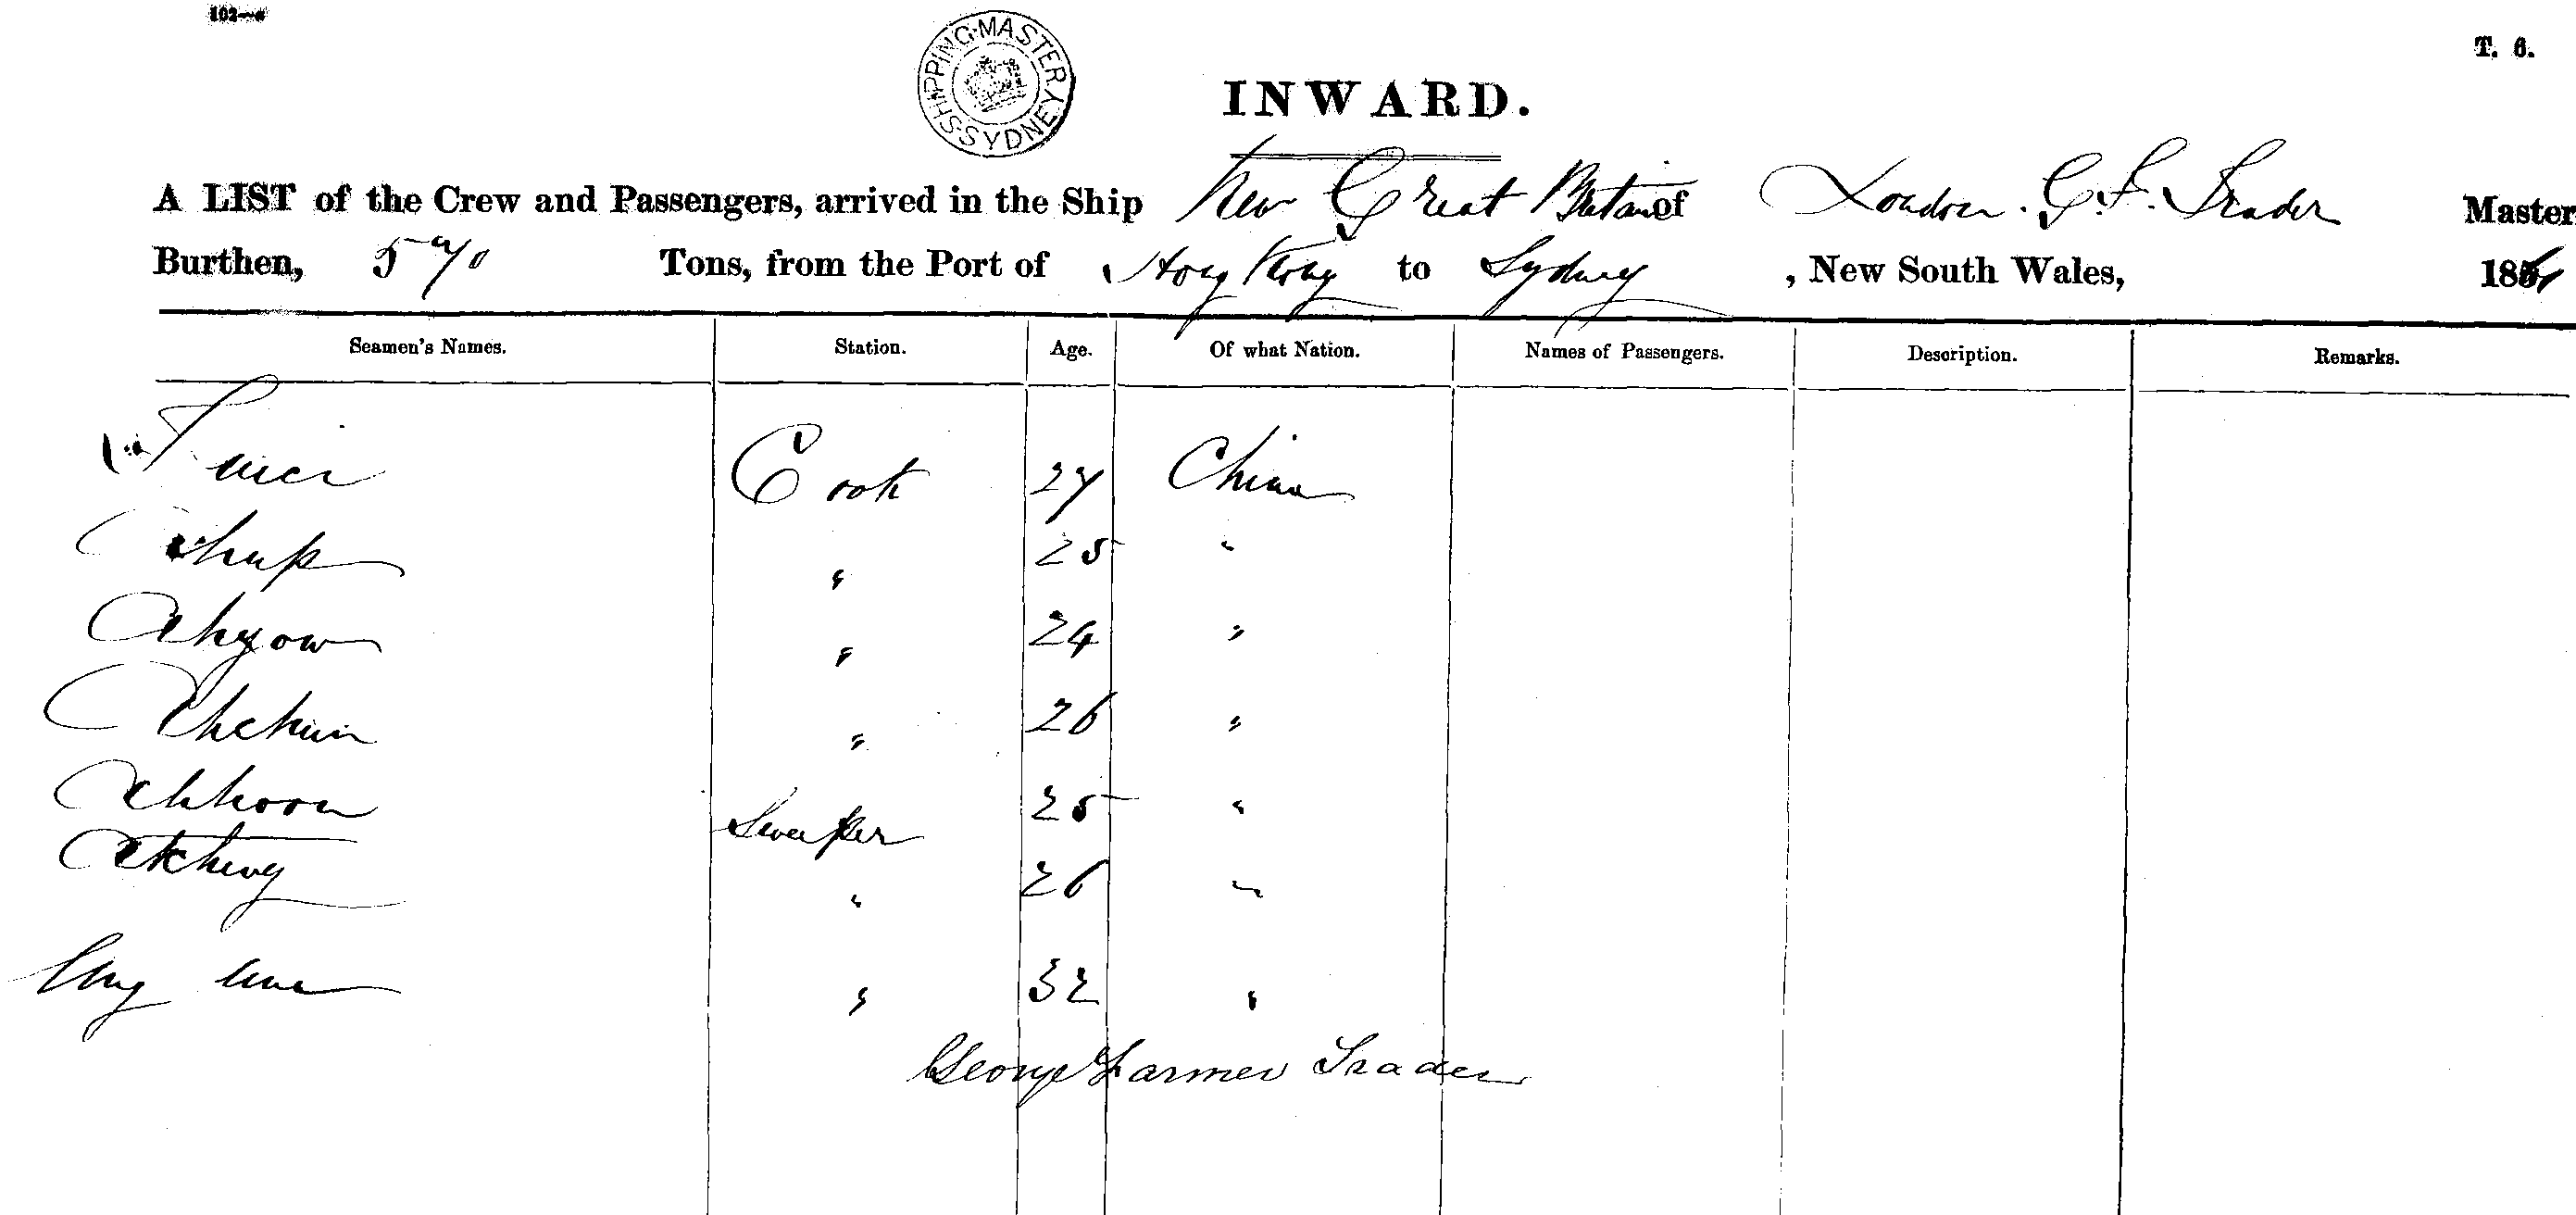 102—a
T. 6.
SHIPPING MASTER SYDNEY
INWARD.
A LIST of the Crew and Passengers, arrived in the Ship New Great Britain of London. G. F. Trader Master
Burthen, 570 Tons, from the Port of Hong Kong to Sydney, New South Wales, 186
Seamen's Names. Station. Age. Of what Nation. Names of Passengers. Description. Remarks.
Cook 27 China
Ahup " 25 "
Ahyow " 24 "
Ahchun " 26 "
Ahhoon Sweeper 25 "
" 26 "
" 32 "
George Farmer Trader